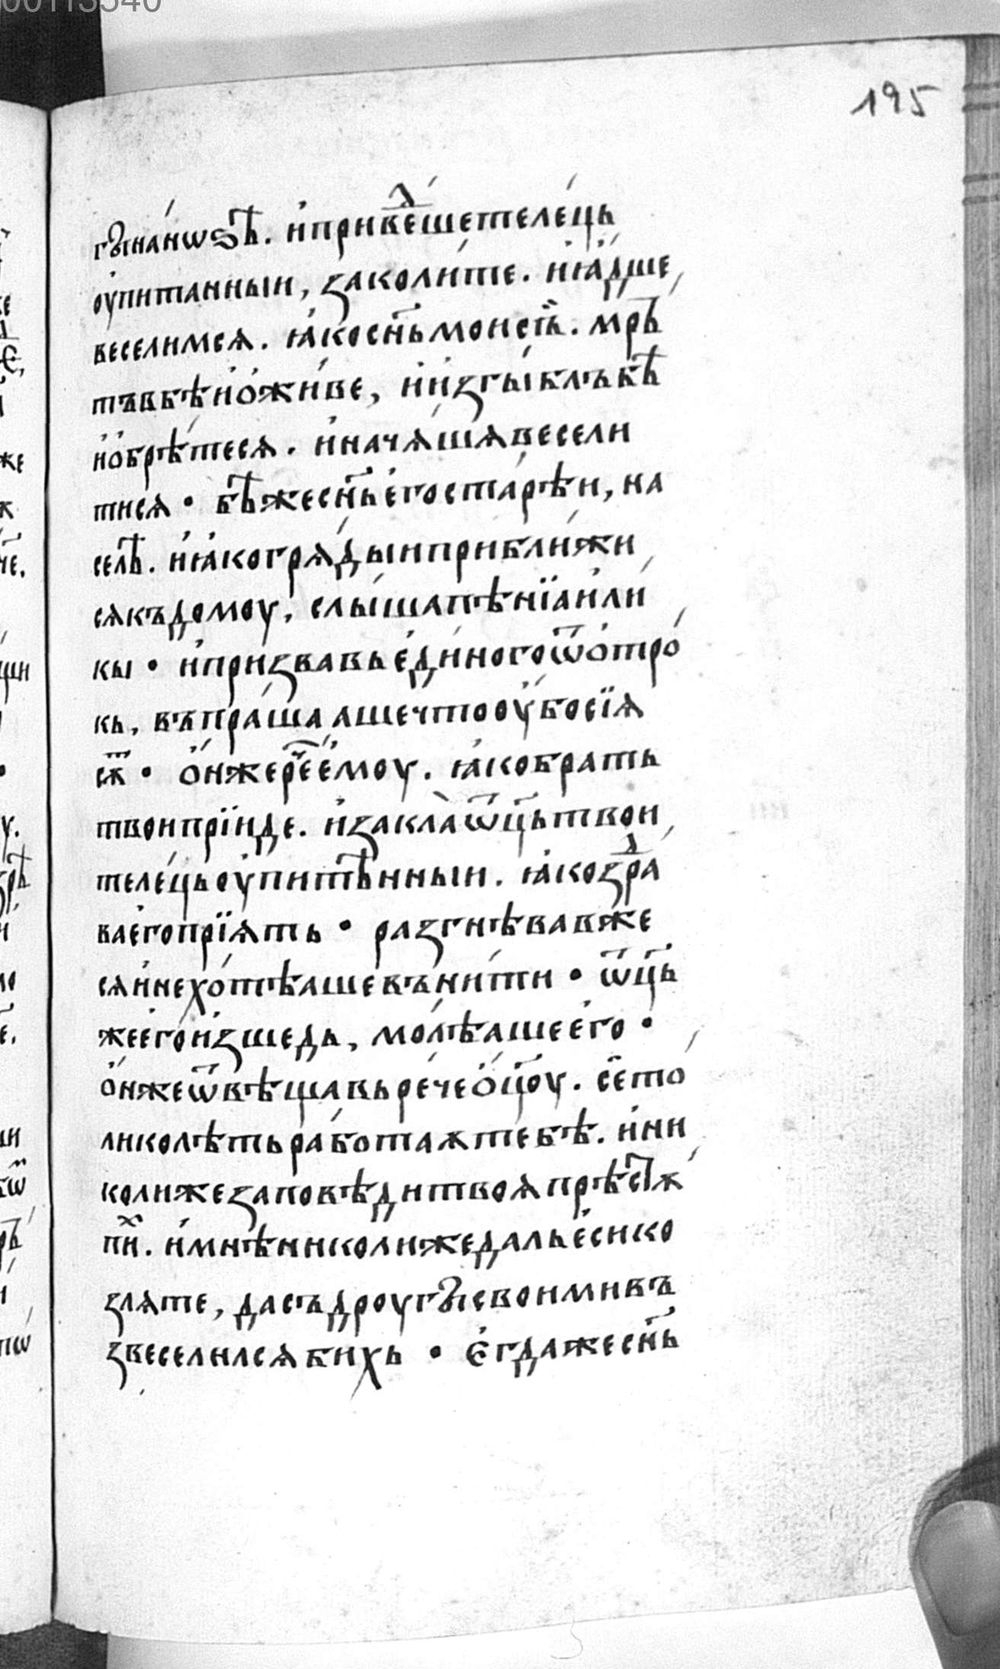 00113540
195
гы на нѡѕѣ. и҆ приве́дше телець
оу҆питанныи, заколи́те. и҆ ꙗ҆́дше
веселимсѧ. ꙗ҆ко сн҃ь мои сь́и. мр҃ь
твь бѣ и҆ ѡ҆живе, и҆ и҆згыблъ бѣ
и҆ ѡ҆брѣ́тесѧ. и҆ начѧшѧ весели
тисѧ • бѣ же сн҃ь е҆го старѣи, на
селѣ. и҆ ꙗ҆ко грѧ́ды и҆ приближи
сѧ къ домоу, слы́ша пѣнїа и҆ ли
кы • и҆ призвавь е҆ди́ного ѿ ѻ҆тро
кь, въпра́шаа аще что оу҆́бо сїѧ
сѫт • ѻ҆́нже рече е҆моу. ꙗ҆ко брать
твои прїиде. и҆ закла ѿц҃ь твои
телець оу҆питѣнныи. ꙗ҆ко здра
ва е҆го прїѧть • разгнѣвав же
сѧ и҆ не хо́тѣаше въни́ти • ѿц҃ь
же е҆го и҆зшедь, молѣаше е҆го •
ѻ҆́нже ѿвѣщавь рече ѻ҆ц҃оу. се то
лико лѣть работаѫ тебѣ. и҆ ни
колиже заповѣди твоѧ прѣстѫ
пих. и҆ мнѣ николиже даль е҆си ко
злѧте, да съ дроугы своими въ
звеселилсѧ бихь • Е҆гда же сн҃ь